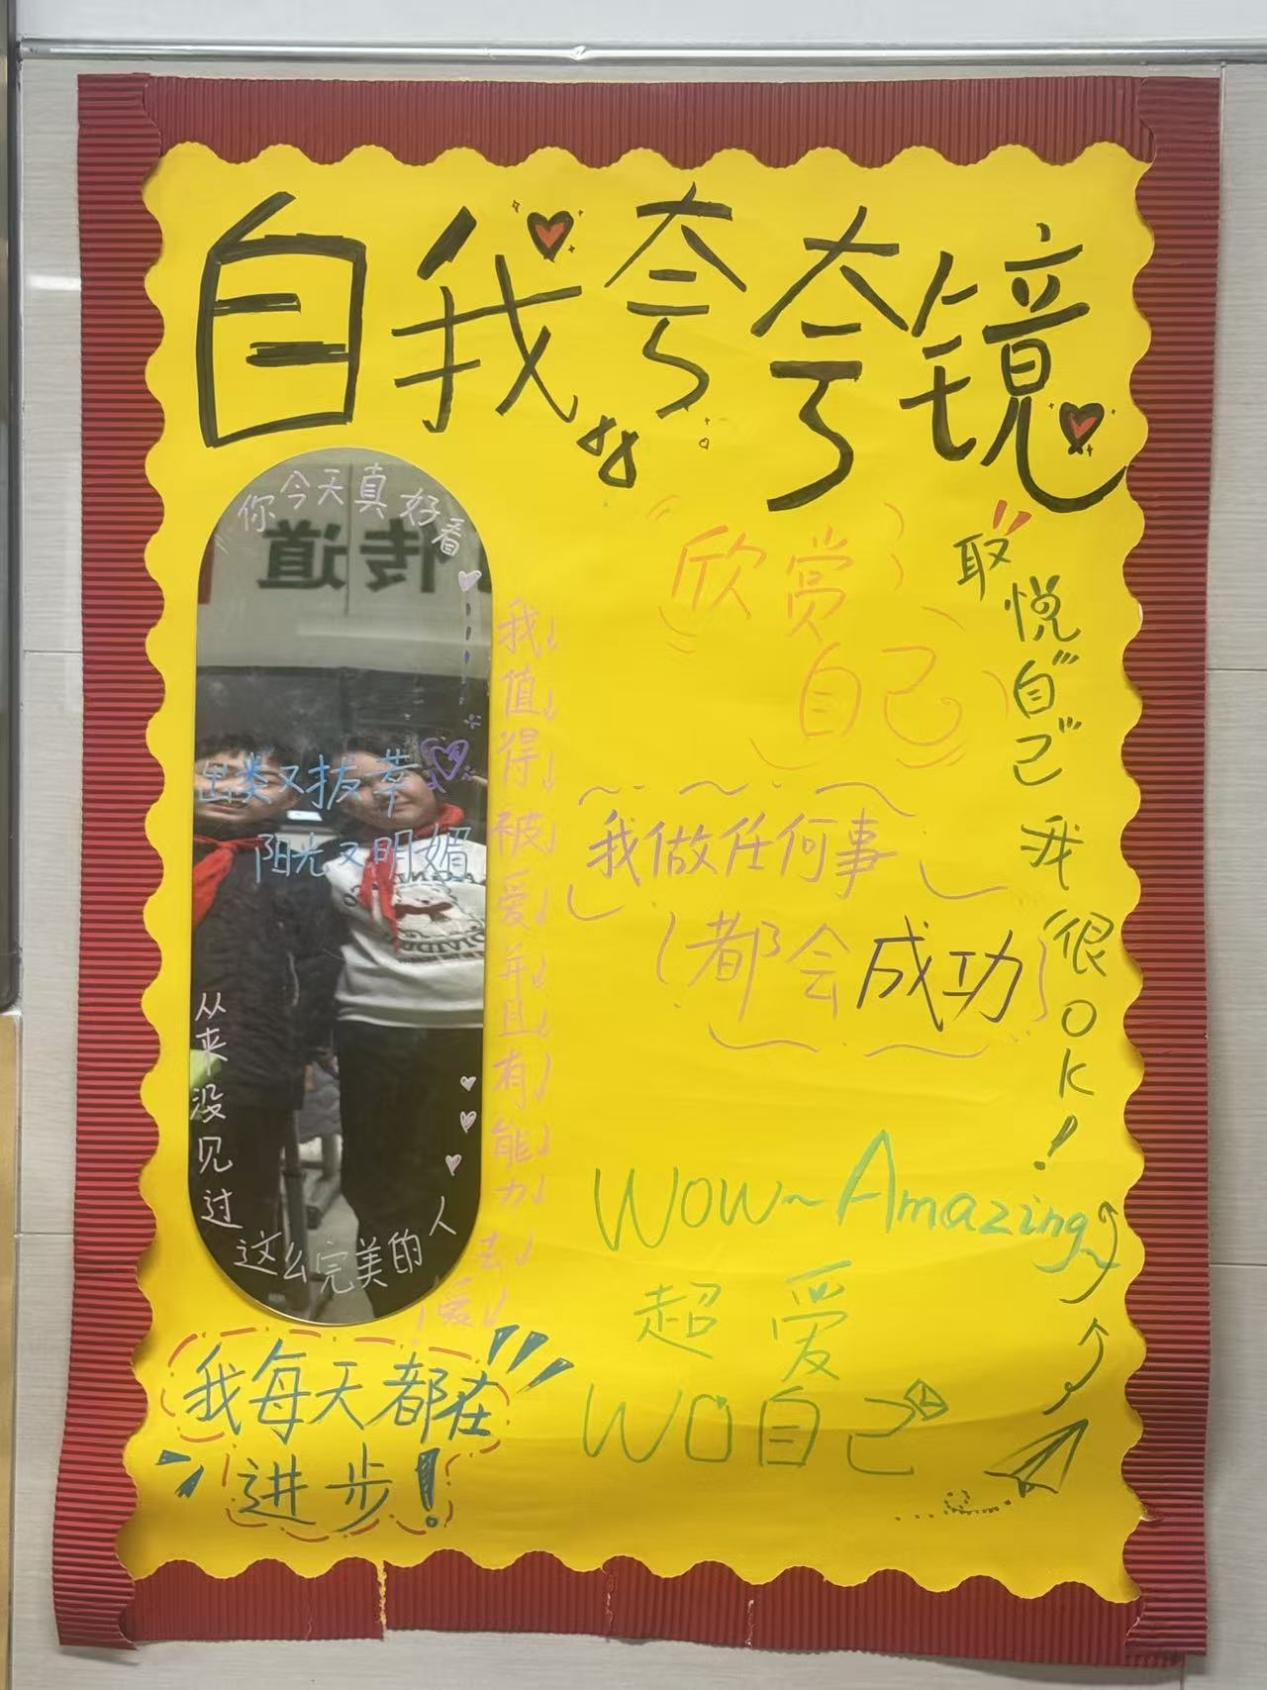 自我夸夸镜
你今天真好看
传道
出类又拔萃
阳光又明媚
从来没见过这么完美的人
我值得被爱并且有能力去爱
欣赏
自己
取悦自己我很OK!
我做任何事
都会成功
Wow~Amazing
超爱
WO自己
我每天都在
进步!